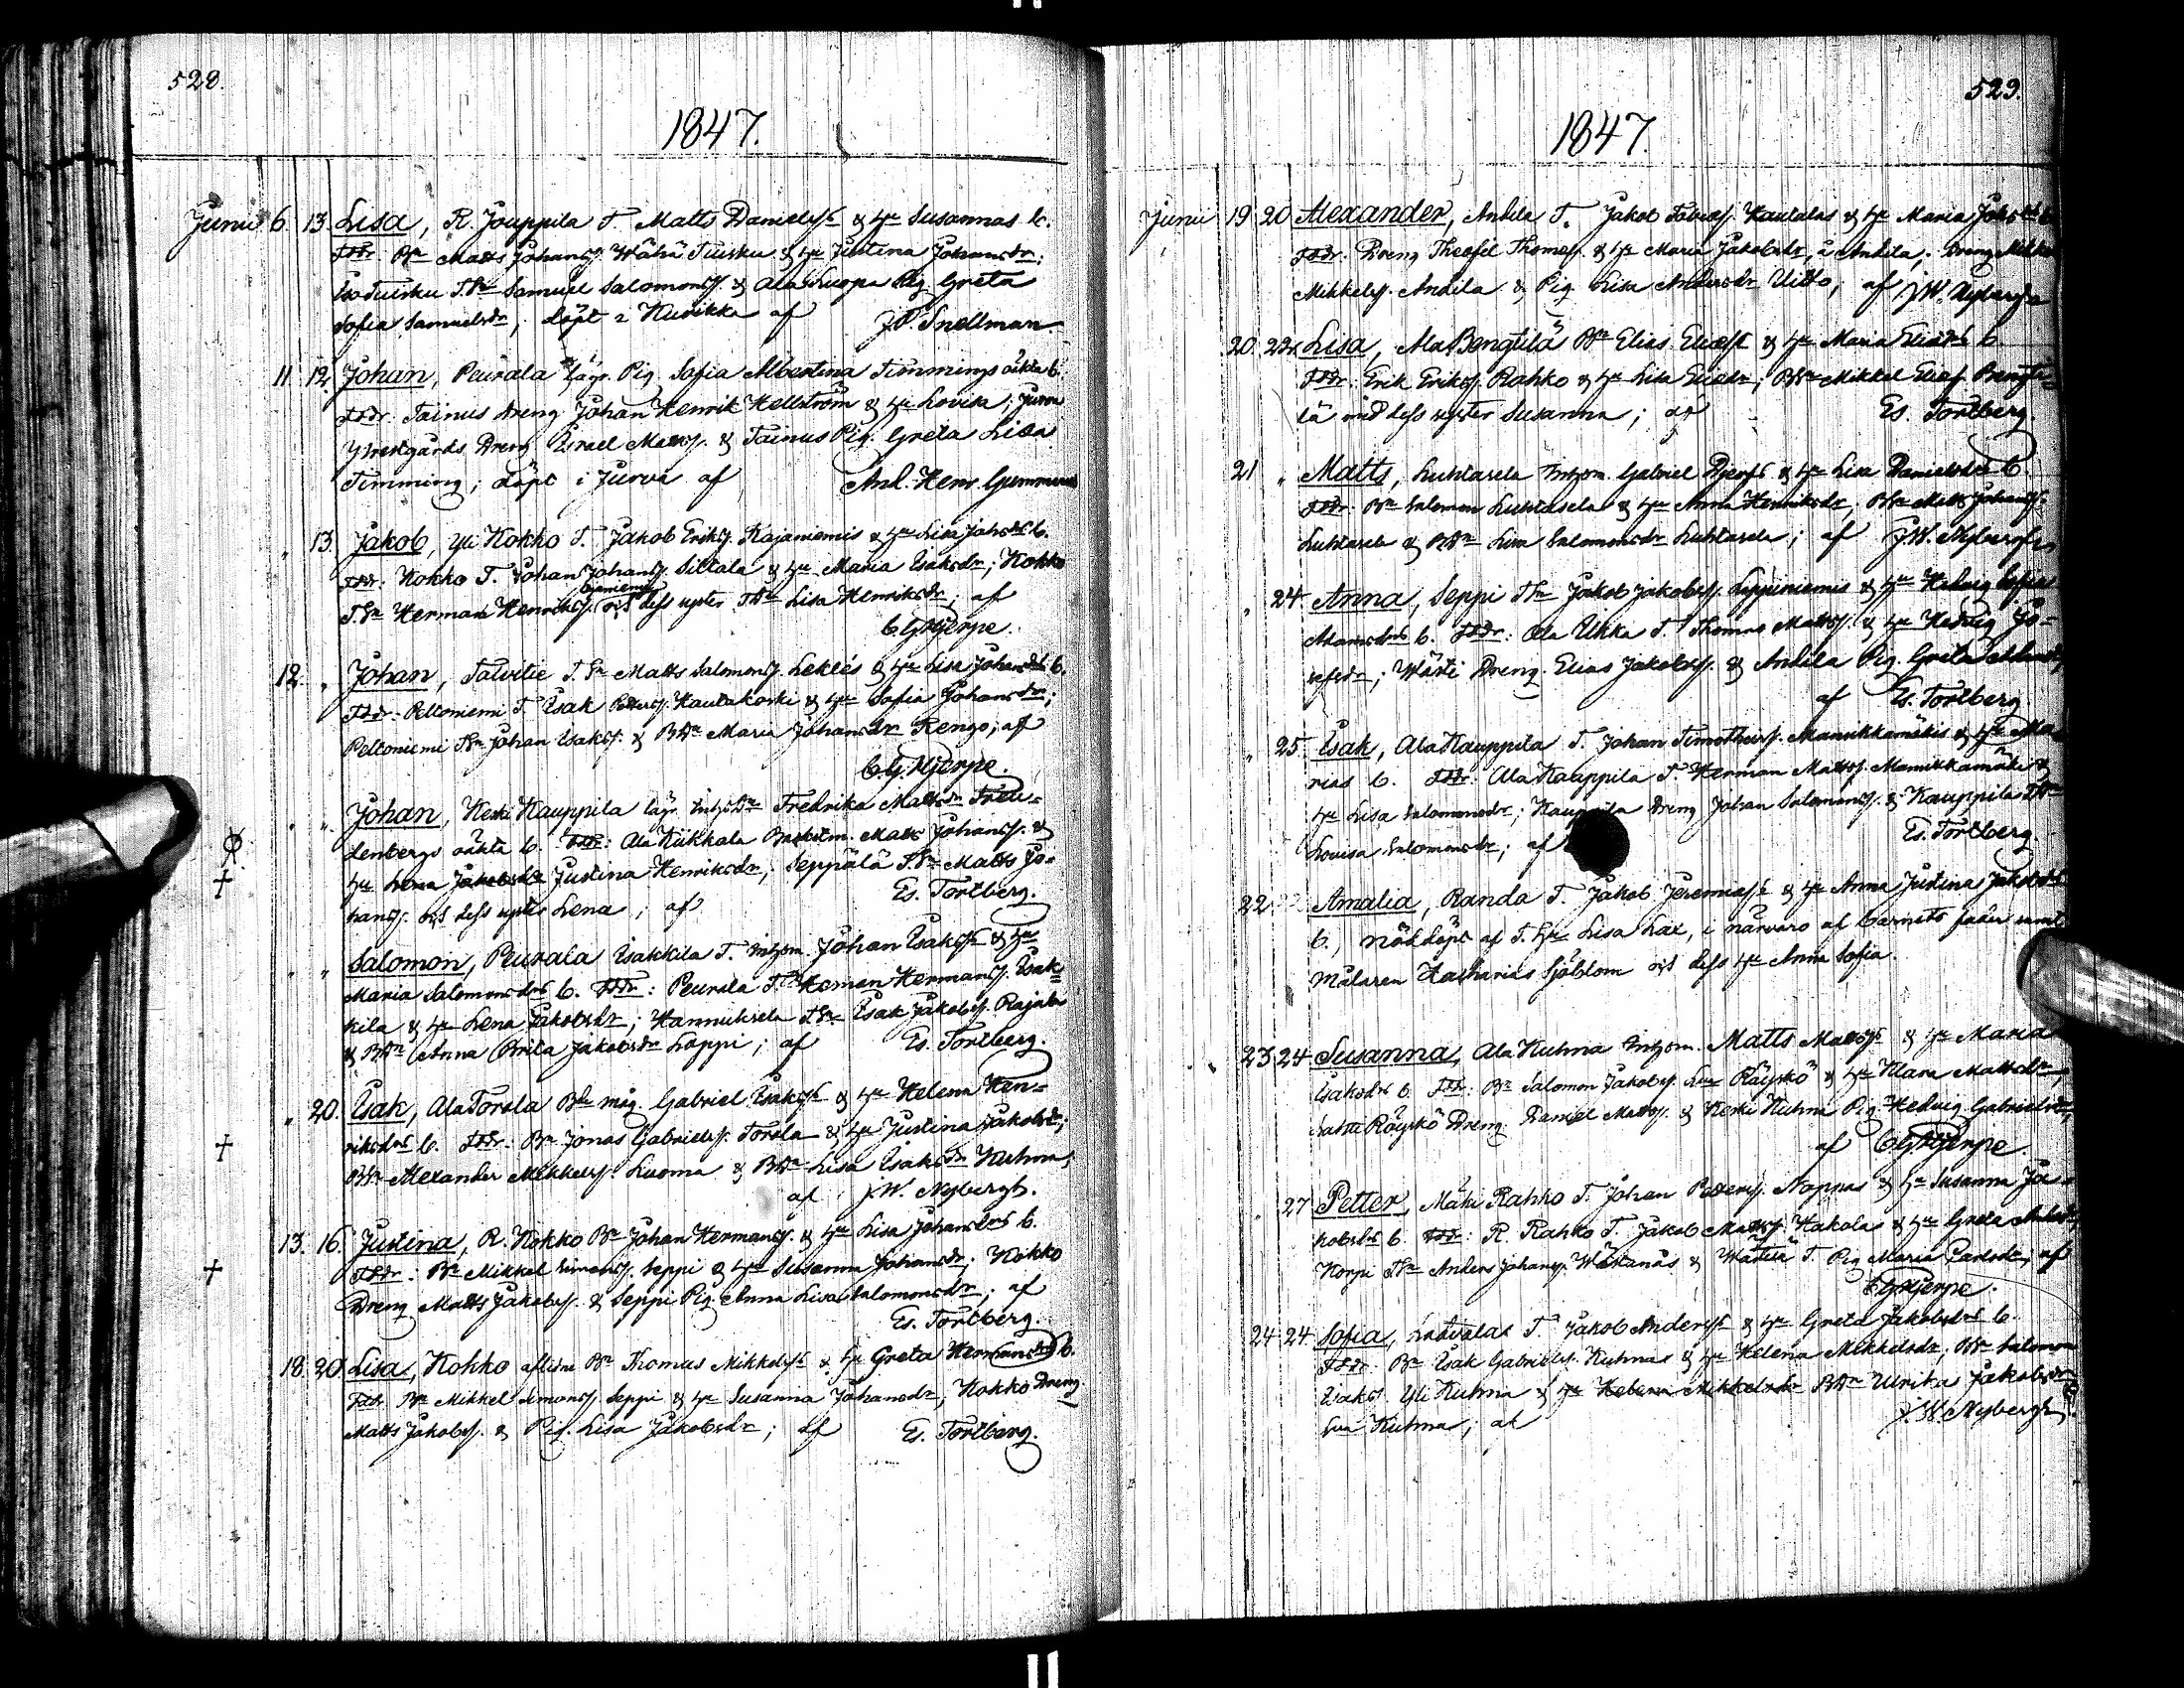 528.
1847.
Junii 6. 13. Lisa, R. Jouppila T. Matts Danielss. & Hu Susannas b.
Fddr. Bn Matts Johanss. Wähä Tuisku & Hu Justina Johansdr;
Iso Tuisku T.Sn Samuel Salomonss. & Ala Luopa Pig. Greta
Sofia Samuelsdr; döpt i Kuvikka af J.P. Snellman
11. 12. Johan, Peurala lägr. Pig. Sofia Albertina Timmings oäkta b.
Fddr. Tainus Dreng Johan Henrik Hellström & Hu Lovisa; Jurva
Dreng Israel Matss. & Tainus Pig. Greta Lisa
Timming; döpt i Jurva af And. Henr. Gummerus
" 13. Jakob, Yli Kokko T. Jakob Erikss. Kajaniemis & Hu Lisa Johsdrs b.
Fddr: Kokko T. Johan Johanss. Siltala & Hu Maria Isaksdr; Kokko
T.Sn Herman Henrikss. och dess syster TDr Lisa Henriksdr; af
C.G. Hjerpe.
12. " Johan, Talvitie T.Sn Matts Salomonss. Leklés & Hu Lisa Johansdrs b.
Fddr: Peltoniemi T. Isak Petterss. Kautakoski & Hu Sofia Johansdr;
Peltoniemi TSn Johan Isakss. & BDr Maria Johansdr Rengo; af
C.G. Hjerpe.
" " Johan, Keski Kauppila lägr. Fredrika Mattsdr
oäkta b. Fddr: Ala Kukkola Matts Johanss. &
Hu Lena Jakobsdr Justina Henriksdr; Seppälä T.Sn Matts Jo-
hanss. och dess syster Lena; af Es. Tortberg.
" " Salomon, Peurala Isakkila T. Inhyson Johan Isakss. & Hu
Maria Salomonsdrs b. Fddr: Peurala T. Hermanss. Isak-
kila & Hu Lena Jakobsdr; Hannuksela T.Sn Isak Jakobss. Rajala
& BDr Anna Brita Jakobsdr Loppi; af Es. Tortberg.
" 20. Isak, Ala Torola Bde måg Gabriel Isakss. & Hu Helena Hen-
riksdrs b. Fddr: Bn Jonas Gabrielss. Torola & Hu Justina Jakobsdr;
BSn Alexander Mikkelss. Luoma & BDr Lisa Isaksdr Kuhna;
af J.W. Nybergh.
13. 16. Justina, R. Kokko Bn Johan Hermanss. & Hu Lisa Johansdrs b.
Fddr: Bn Mikkel Simonss. Seppi & Hu Susanna Johansdr; Kokko
Dreng Matts Jakobss. & Seppi Pig. Anna Lisa Salomonsdr; af
Es. Tortberg.
18. 20. Lisa, Kokko aflidne Bn Thomas Mikkelss. & Hu Greta Hermansdrs b.
Fddr Bn Mikkel Simonss. Seppi & Hu Susanna Johansdr; Kokko Dreng
Matts Jakobss. & Pig. Lisa Jakobsdr; af Es. Tortberg.
529.
1847.
Junii 19 20 Alexander, Andila T. Jakob Tobiass. Kautalas & Hu Maria
Fddr. Dreng Theofel Thomass. & Hu Maria Jakobsdr, å Andila; Dreng Mikkel
Mikkelss. Andila & Pig. Lisa Andersdr Uitto; af J.W. Nybergh
20. 22. Lisa, Ala Bengtilä Bn Elias Eliass. & Hu Maria Eliædrs b.
Fddr: Erik Erikss. Rahko & Hu Lisa Eliædr; BSn Mikkel Eliass. Bengti-
lä och dess syster Susanna; af Es. Tortberg.
21 " Matts, Luhtasela Inhysm. Gabriel & Hu Lisa Danielsdrs b.
Fddr. Bn Salomon Luhtasela & Hu Anna Henriksdr; BSn Matts Johanss.
Luhtasela & BDr Lisa Salomonsdr Luhtasela; af J.W. Nybergh
" 24. Anna, Seppi TSn Jakob Jakobss. Leppiniemis & Hu Hedvig Sofia
Adamsdrs b. Fddr: Ala Ukka T. Thomas Mattss. & Hu Hedvig Jo-
sefsdr; Wästi Dreng Elias Jakobss. & Andila Pig. Greta
af Es. Tortberg
" 25. Isak, Ala Kauppila T. Johan Timotheuss. Mamikkamäkis & Hu Ma-
rias b. Fddr: Ala Kauppila T. Herman Mattss. Mamikkamäki &
Hu Lisa Salomonsdr; Kauppila Dreng Johan Salomonss. & Kauppila
Lovisa Salomonsdr; af Es. Tortberg.
22. Amalia, Randa T. Jakob Jeremiass. & Hu Anna Justinas Jakobsdrs
b., nöddöpt af T.Hu Lisa Lax, i närvaro af barnets fader samt
Målaren Zacharias Sjöblom och dess Hu Anna Sofia.
23 24 Susanna, Ala Kuhna Inhysm. Matts Mattss. & Hu Maria
Isaksdrs b. Fddr: Bn Salomon Jakobss. Röyskö & Hu Klara Mattsdr;
Röyskö Dreng Daniel Mattss. & Keski Kuhna Pig. Hedvig Gabrielsdr;
af C.G. Hjerpe.
" 27 Petter, Mäki Rahko T. Johan Petterss. Noppas & Hu Susanna Ja-
kobsdrs b. Fddr: R. Rahko T. Jakob Mattss. Hakola & Hu Greta
Korpi TSn Anders Johanss. & T. Pig. Maria Carlsdr; af
C.G. Hjerpe.
24 24. Sofia, Latvalas T. Jakob Anderss. & Hu Greta Jakobsdrs b.
Fddr. Bn Isak Gabrielss. Kuhnas & Hu Helena Mikkelsdr; BSn Salomon
Isakss. Yli Kuhna & Hu Helena Mikkelsdr BDr Ulrika Jakobsdr
Kuhna; af J.W. Nybergh.